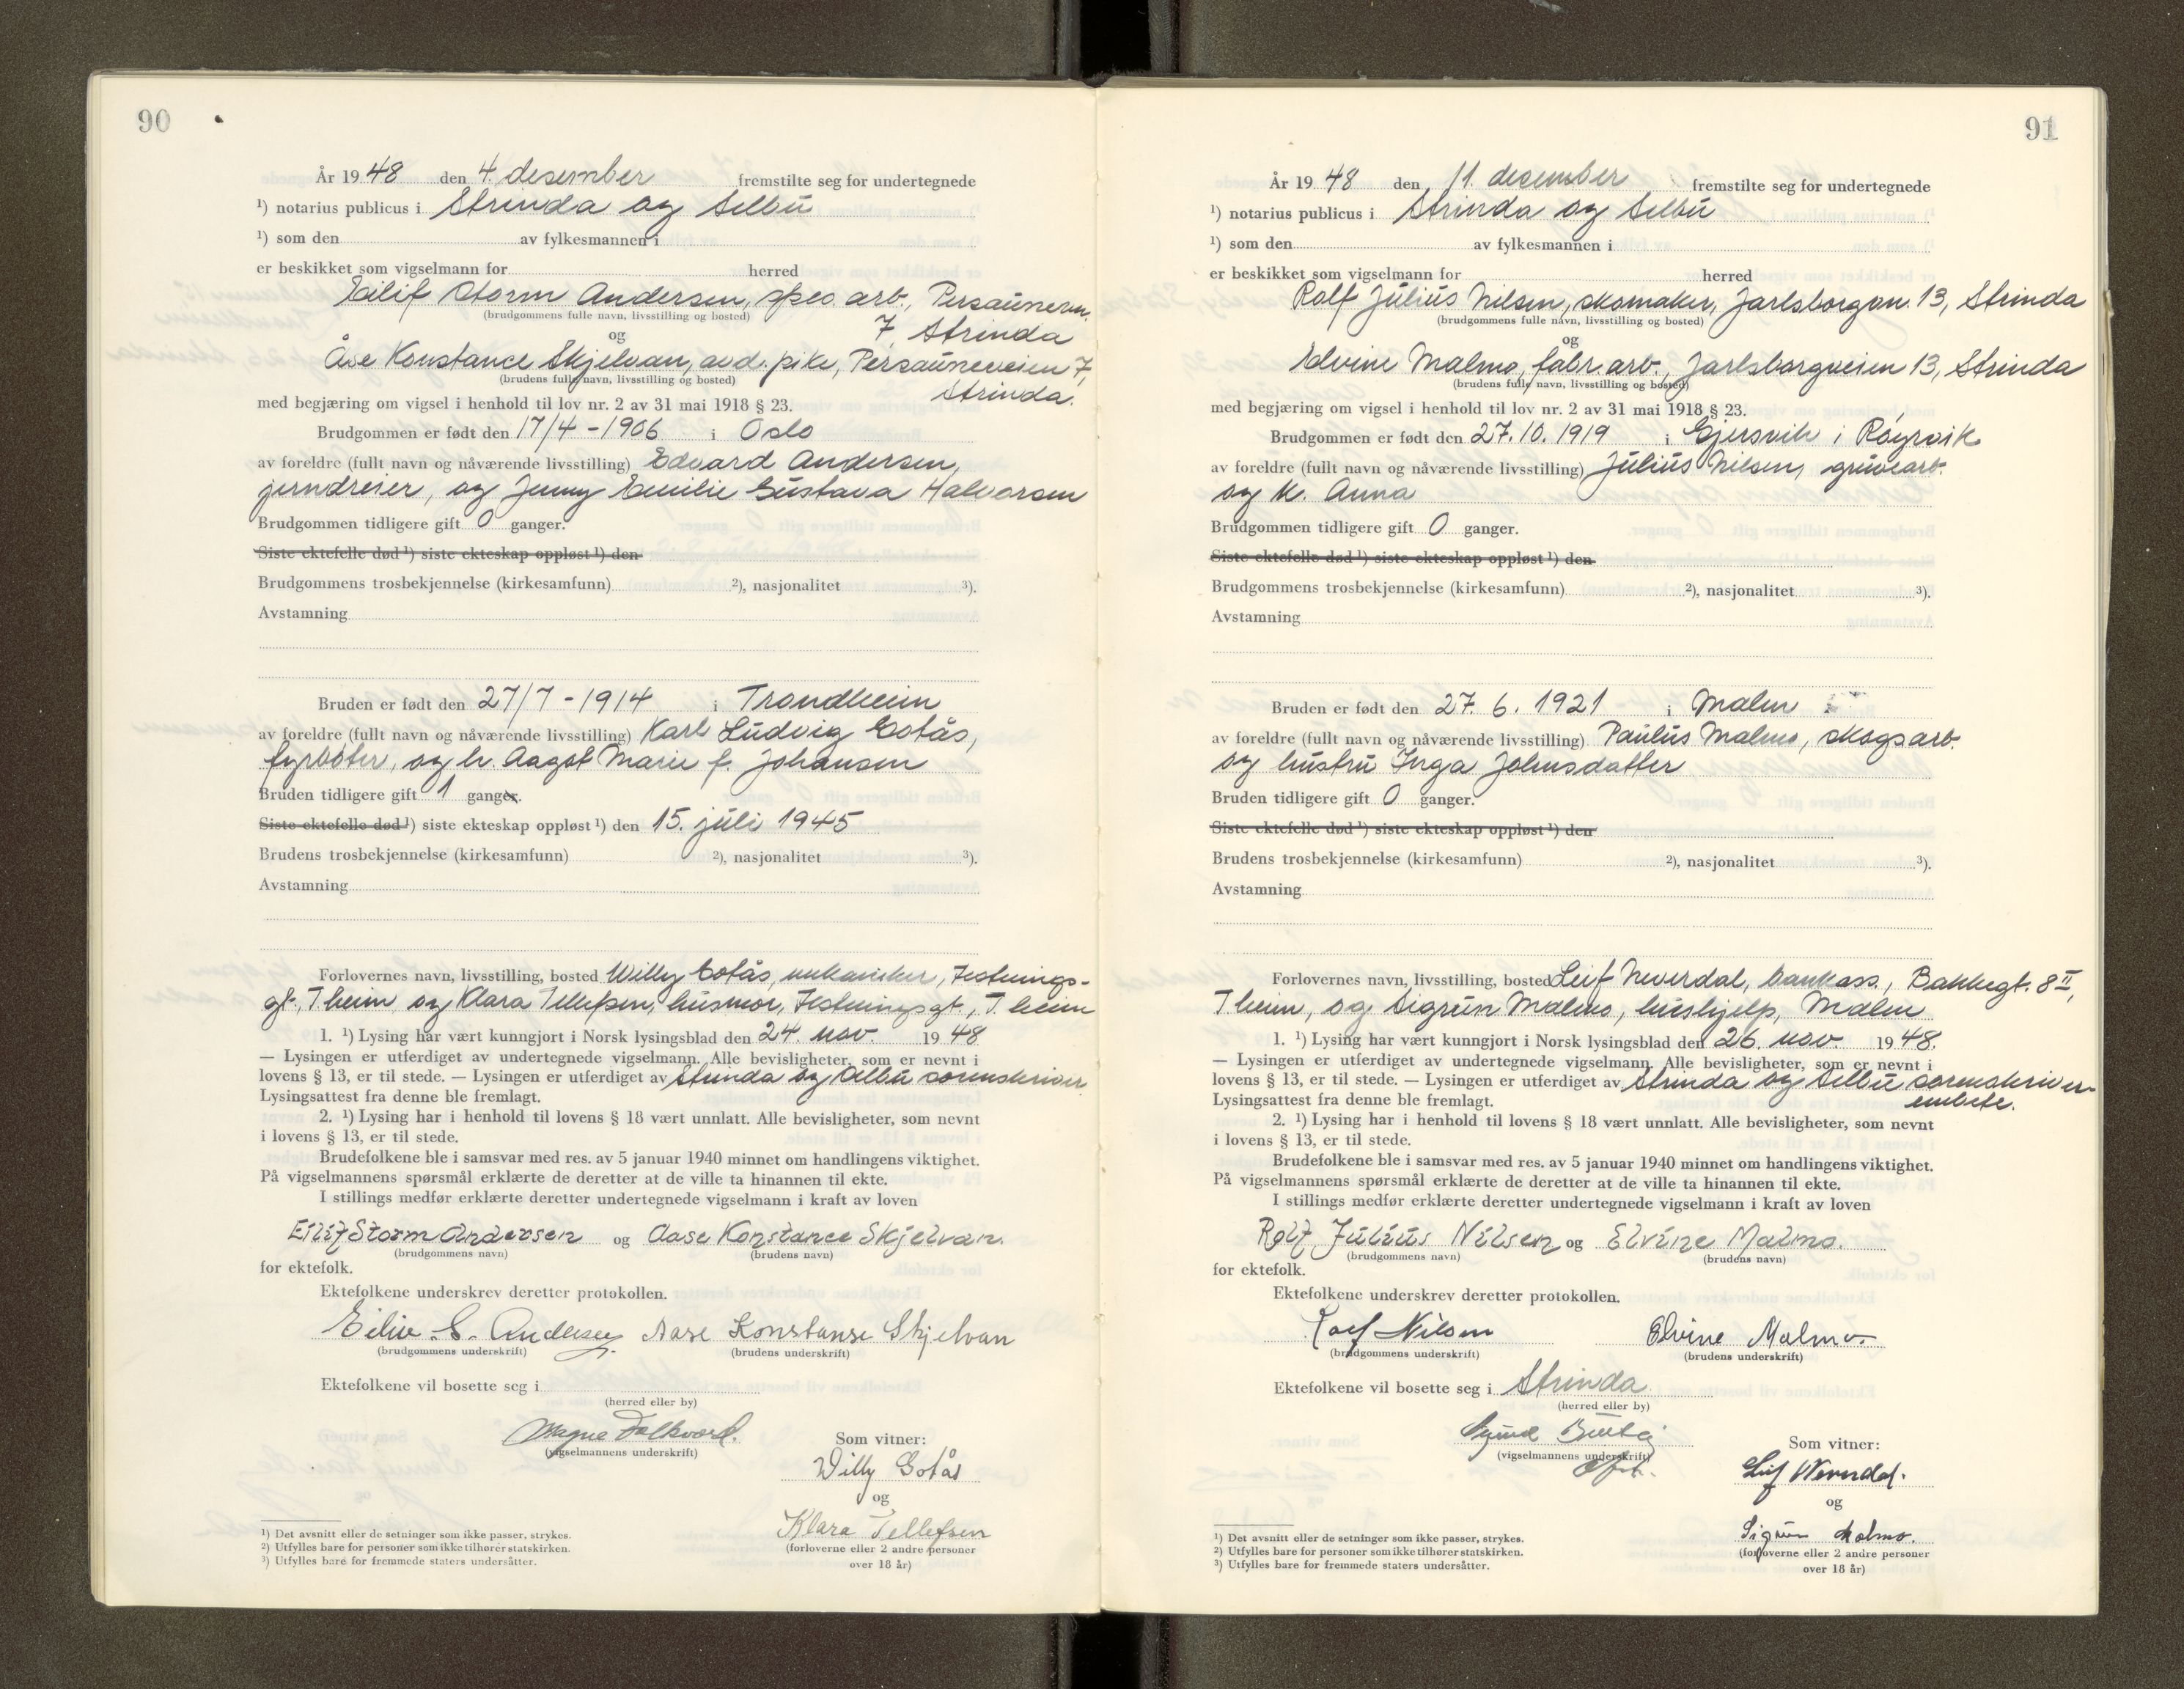 90
År 1948 den 4. desember fremstilte seg for undertegnede
¹) notarius publicus i Strinda og Selbu
¹) som den av fylkesmannen i
er beskikket som vigselmann for herred
Eilif Storm Andersen, spes. arb., Persaunevn.
(brudgommens fulle navn, livsstilling og bosted)
7, Strinda
og
Åse Konstance Skjelvan, avd. pike, Persauneveien 7,
(brudens fulle navn, livsstilling og bosted)
Strinda.
med begjæring om vigsel i henhold til lov nr. 2 av 31 mai 1918 § 23.
Brudgommen er født den 17/4 - 1906 i Oslo
av foreldre (fullt navn og nåværende livsstilling) Edvard Andersen,
jerndreier, og Jenny Emilie Gustava Halvorsen
Brudgommen tidligere gift 0 ganger.
Siste ektefelle død ¹) siste ekteskap oppløst ¹) den
Brudgommens trosbekjennelse (kirkesamfunn) ²), nasjonalitet ³).
Avstamning
Bruden er født den 27/7 - 1914 i Trondheim
av foreldre (fullt navn og nåværende livsstilling) Karl Ludvig Gotås,
fyrbøter, og h. Aagot Marie f. Johansen
Bruden tidligere gift 1 ganger.
Siste ektefelle død ¹) siste ekteskap oppløst ¹) den 15. juli 1945
Brudens trosbekjennelse (kirkesamfunn) ²), nasjonalitet ³).
Avstamning
Forlovernes navn, livsstilling, bosted Willy Gotås, mekaniker, Festnings-
gt., T.heim og Klara Tellefsen, husmor, Festningsgt., T.heim
1. ¹) Lysing har vært kunngjort i Norsk lysingsblad den 24. nov. 1948
— Lysingen er utferdiget av undertegnede vigselmann. Alle bevisligheter, som er nevnt i
lovens § 13, er til stede. — Lysingen er utferdiget av Strinda og Selbu sorenskriver
Lysingsattest fra denne ble fremlagt.
2. ¹) Lysing har i henhold til lovens § 18 vært unnlatt. Alle bevisligheter, som nevnt
i lovens § 13, er til stede.
Brudefolkene ble i samsvar med res. av 5 januar 1940 minnet om handlingens viktighet.
På vigselmannens spørsmål erklærte de deretter at de ville ta hinannen til ekte.
I stillings medfør erklærte deretter undertegnede vigselmann i kraft av loven
Eilif Storm Andersen og Aase Konstance Skjelvan.
(brudgommens navn) (brudens navn)
for ektefolk.
Ektefolkene underskrev deretter protokollen.
Eiliv S. Andersen Aase Konstanse Skjelvan
(brudgommens underskrift) (brudens underskrift)
Ektefolkene vil bosette seg i
(herred eller by)
Magne Falkvord.
(vigselmannens underskrift)
Som vitner:
Willy Gotås
og
Klara Tellefsen
(forloverne eller 2 andre personer
over 18 år)
¹) Det avsnitt eller de setninger som ikke passer, strykes.
²) Utfylles bare for personer som ikke tilhører statskirken.
³) Utfylles bare for fremmede staters undersåtter.
91
År 1948 den 11. december fremstilte seg for undertegnede
¹) notarius publicus i Strinda og Selbu
¹) som den av fylkesmannen i
er beskikket som vigselmann for herred
Rolf Julius Nilsen, skomaker, Jarlsborgvn. 13, Strinda
(brudgommens fulle navn, livsstilling og bosted)
og
Elvine Malmo, fabr.arb., Jarlsborgveien 13, Strinda
(brudens fulle navn, livsstilling og bosted)
med begjæring om vigsel i henhold til lov nr. 2 av 31 mai 1918 § 23.
Brudgommen er født den 27.10.1919 i Gjersvik i Røyrvik
av foreldre (fullt navn og nåværende livsstilling) Julius Nilsen, gruvearb.
og h. Anna
Brudgommen tidligere gift 0 ganger.
Siste ektefelle død ¹) siste ekteskap oppløst ¹) den
Brudgommens trosbekjennelse (kirkesamfunn) ²), nasjonalitet ³).
Avstamning
Bruden er født den 27. 6. 1921 i Malm
av foreldre (fullt navn og nåværende livsstilling) Paulus Malmo, skogsarb.
og hustru Inga Johnsdatter
Bruden tidligere gift 0 ganger.
Siste ektefelle død ¹) siste ekteskap oppløst ¹) den
Brudens trosbekjennelse (kirkesamfunn) ²), nasjonalitet ³).
Avstamning
Forlovernes navn, livsstilling, bosted Leif Neverdal, bankass., Bakkegt. 8 II,
T.heim, og Sigrun Malmo, hushjelp, Malm
1. ¹) Lysing har vært kunngjort i Norsk lysingsblad den 26. nov. 1948.
— Lysingen er utferdiget av undertegnede vigselmann. Alle bevisligheter, som er nevnt i
lovens § 13, er til stede. — Lysingen er utferdiget av Strinda og Selbu sorenskriver-
embete.
Lysingsattest fra denne ble fremlagt.
2. ¹) Lysing har i henhold til lovens § 18 vært unnlatt. Alle bevisligheter, som nevnt
i lovens § 13, er til stede.
Brudefolkene ble i samsvar med res. av 5 januar 1940 minnet om handlingens viktighet.
På vigselmannens spørsmål erklærte de deretter at de ville ta hinannen til ekte.
I stillings medfør erklærte deretter undertegnede vigselmann i kraft av loven
Rolf Julius Nilsen og Elvine Malmo.
(brudgommens navn) (brudens navn)
for ektefolk.
Ektefolkene underskrev deretter protokollen.
Rolf Nilsen Elvine Malmo
(brudgommens underskrift) (brudens underskrift)
Ektefolkene vil bosette seg i Strinda
(herred eller by)
(vigselmannens underskrift)
Som vitner:
Leif Neverdal.
og
Sigrun Malmo.
(forloverne eller 2 andre personer
over 18 år)
¹) Det avsnitt eller de setninger som ikke passer, strykes.
²) Utfylles bare for personer som ikke tilhører statskirken.
³) Utfylles bare for fremmede staters undersåtter.